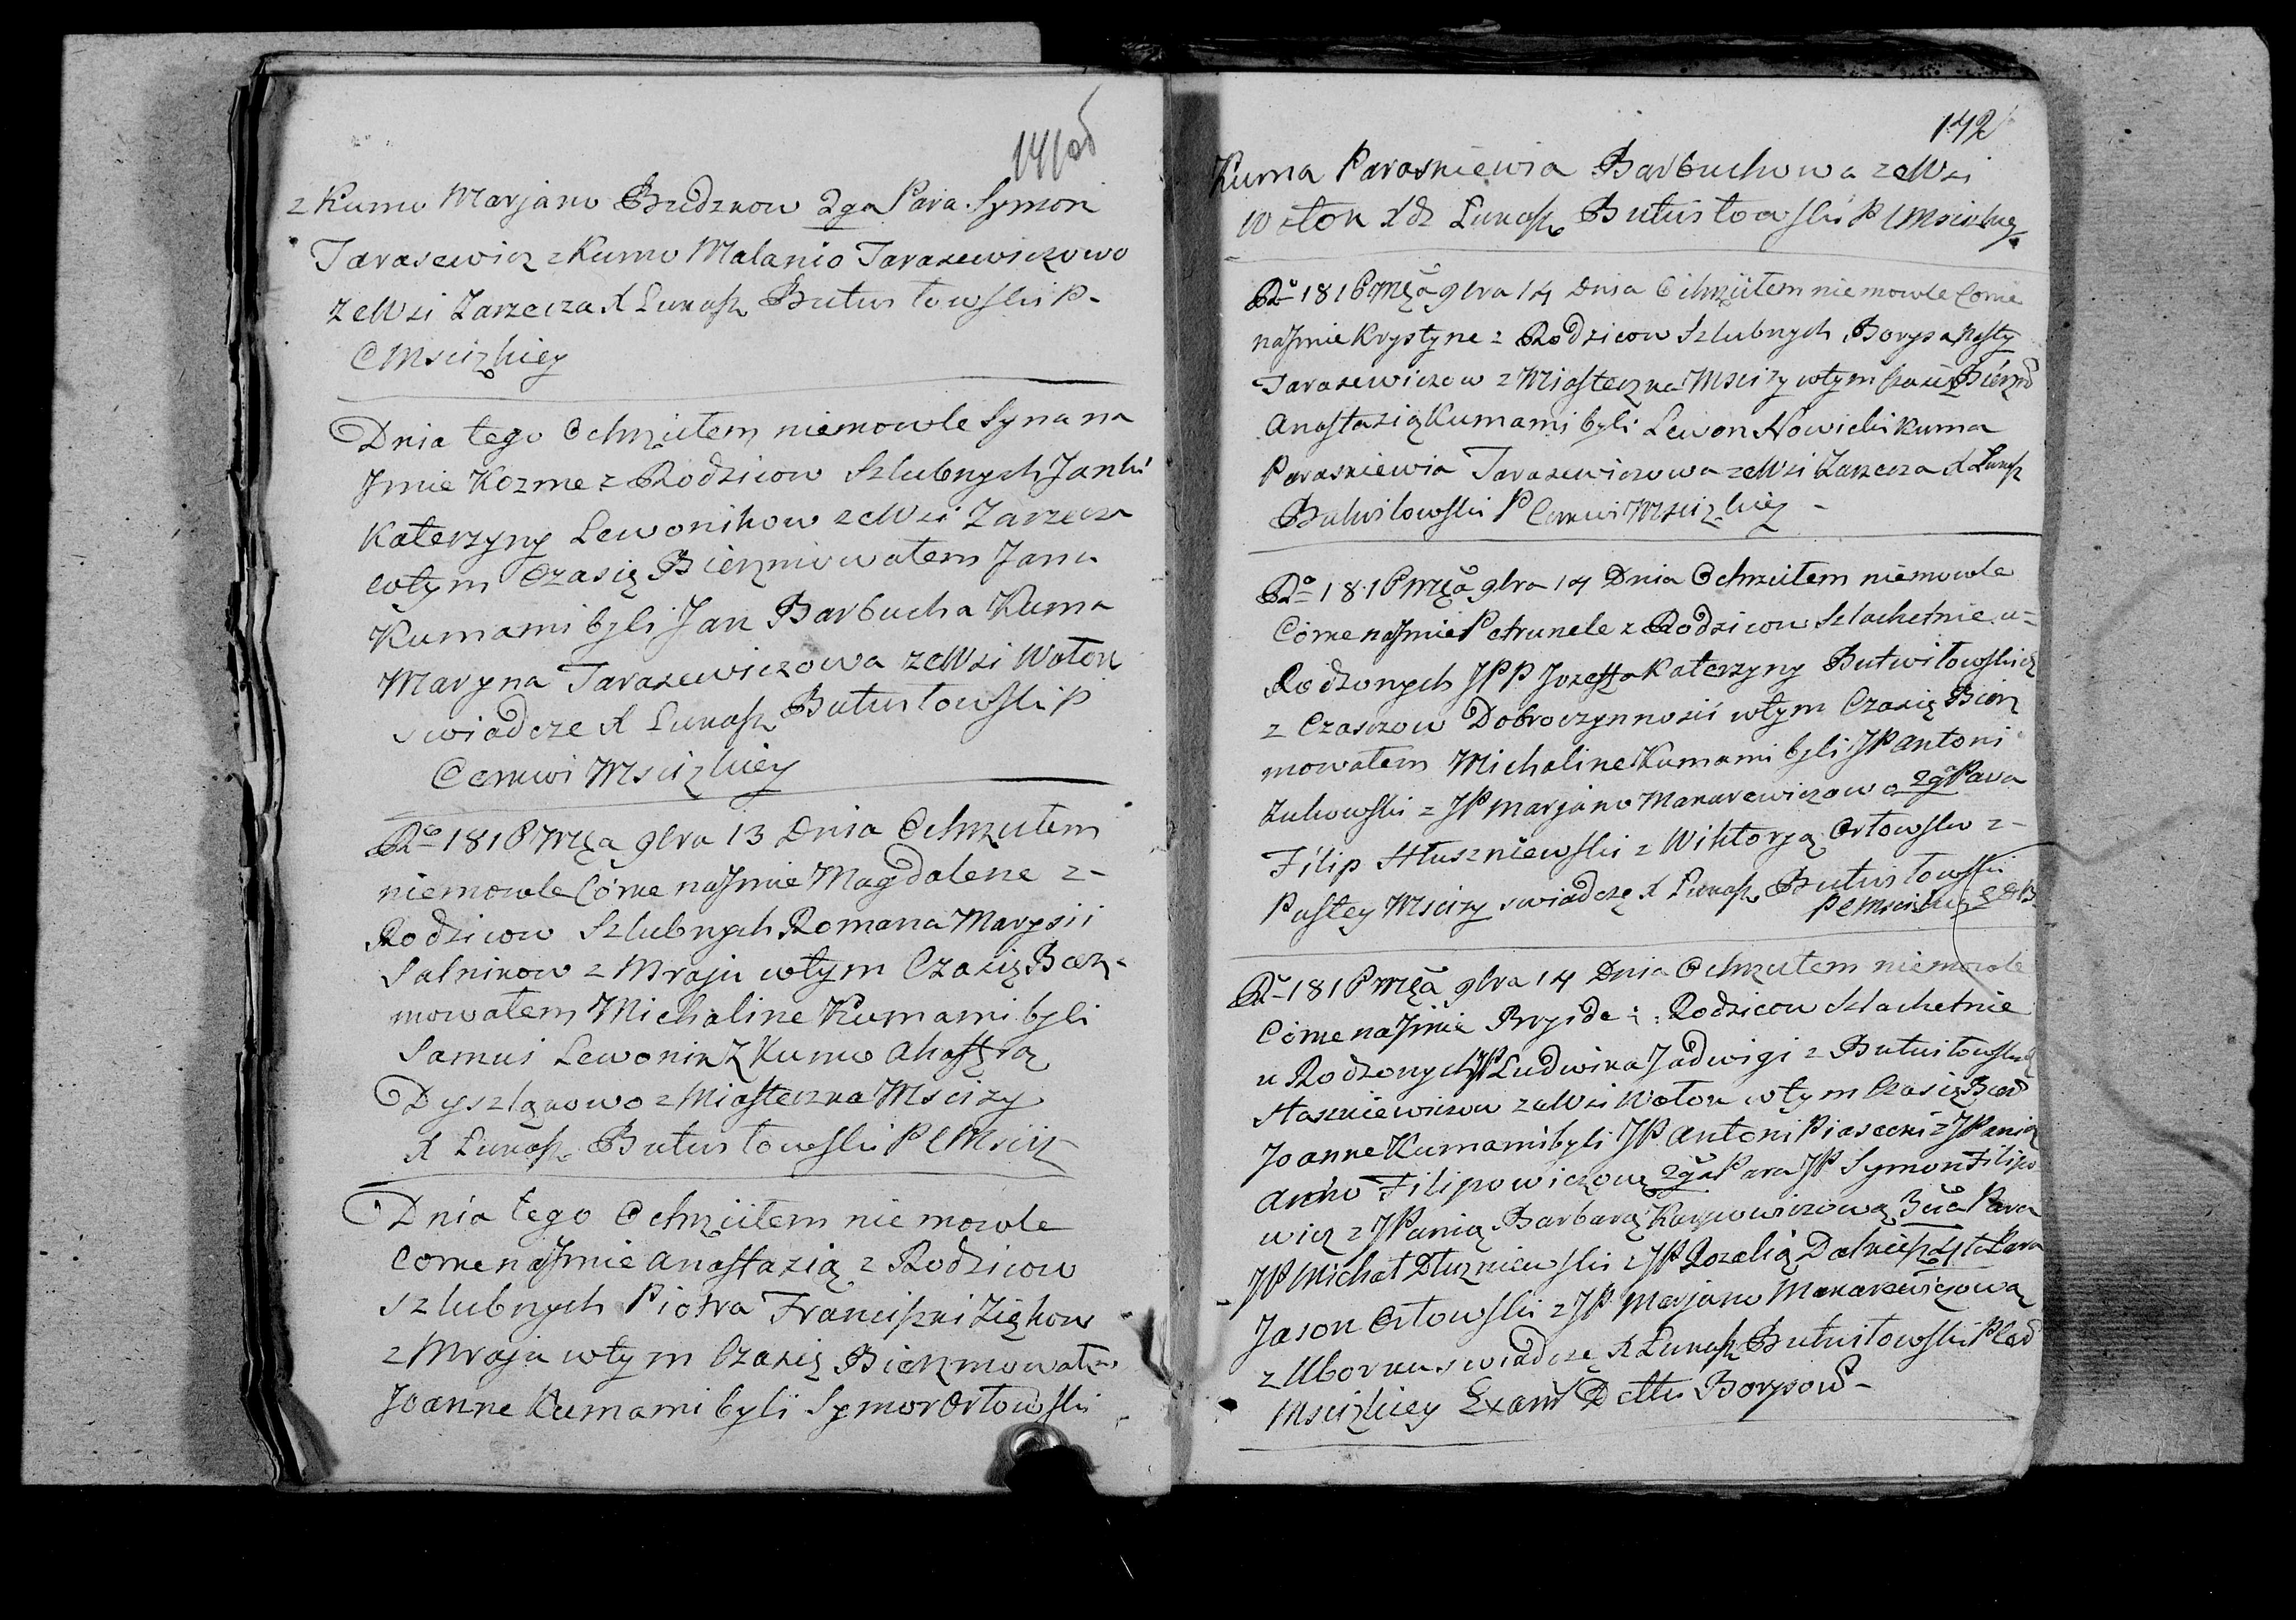 141 об
z Kumo Marjano Budzkow 2ga Para Symon
Tarasewicz z Kumo Malanio Tarasewiczowo
ze Wsi Zarzecza X Łukasz Butwiłowski P
C Msciżkiey
Dnia tego Ochrzciłem niemowle Syna na
Jmie Kozme z Rodzicow Szlubnych Janki
Katerzyny Lewonikow ze Wsi Zarzecza
wtym Czasię Bierzmowałem Jana
Kumami byli Jan Barbucha Kuma
Maryna Tarasewiczowa ze Wsi Wołok
swiadcze X Łukasz Butwiłowski P
Cerkwi Msciżkiey
Rº 1818 Mca 9bra 13 Dnia Ochrzciłem
niemowle Córke na Jmie Magdalene z
Rodzicow Szlubnych Romana Marysii
Salnikow z Mraju wtym Czasię Bierz-
mowałem Michaline Kumami byli
Samuś Lewonik z Kumo Ahafią
Dyszlakowo z Miasteczka Msciży
X Łukasz Butwiłowski P C Msciż
Dnia tego Ochrzciłem niemowle
Corke na Jmie Anastazią z Rodzicow
szlubnych Piotra Franciszki Ziękow
z Mraju wtym Czasię Bierzmowałem
Joanne Kumami byli Symon Orłowski
142
Kuma Paraskiewia Barbuchowa ze Wsi
Wołok Xdz Łukasz Butwiłowski P C Msciżkiey
Rº 1818 Mca 9bra 14 Dnia Ochrzciłem niemowle Corke
na Jmie Krystyne z Rodzicow Szlubnych Borysa Nasty
Tarasewiczow z Miasteczka Msciży wtym Czasię Bierzmo
Anastazią Kumami byli Lewon Nowicki Kuma
Paraskiewia Tarasewiczowa ze Wsi Zarzecza X Łukasz
Butwiłowski P Cerkwi Msciżkiey
Rº 1818 Mca 9bra 14 Dnia Ochrzciłem niemowle
Córke na Jmie Petrunele z Rodzicow Szlachetnie u=
Rodzonych JPP Jozeffa Katerzyny Butwiłowskich
z Czasczow Dobroczynnosci wtym Czasię Bierz
mowałem Michaline Kumami byli JP Antoni
Żukowski z JP Marjano Makarewiczowo 2ga Para
Filip Słuszniewski z Wiktorją Orłowsko z
Pustey Msciży swiadczę X Łukasz Butwiłowski
P C Msciżkiey
Rº 1818 Mca 9bra 14 Dnia Ochrzciłem niemowle
Córke na Jmie Brygide z Rodzicow Szlachetnie
u Rodzonych JP Ludwika Jadwigi z Butwiłowskich
Staszkiewiczow ze Wsi Wołok wtym Czasię
Joanne Kumami byli JP Antoni Piasecki z JPanią
Anno Filipowiczową 2ga Para JP Symon Filipo
wicz z JPanią Barbarą Karpowiczową 3cia Para
JP Michał Dłużniewski z JP Rozalią 4ta Para
Jason Orłowski z JP Marjano Makarewiczową
z Uborku swiadczę X Łukasz Butwiłowski
Msciżkiey Exam Dettu Borysow